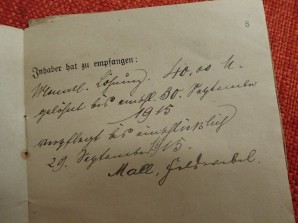 8
Inhaber hat zu empfangen:
Löhnung. 40,00 M.
gelöhnt bis einschl. 30. September
1915
verpflegt bis einschließlich
29. September 1915.
Mall. Feldwebel.